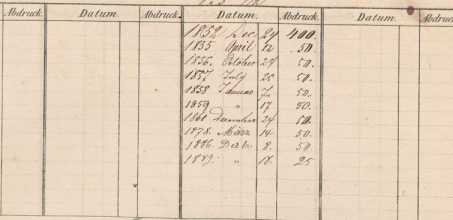 Abdruck. Datum. Abdruck. Datum. Abdruck. Datum. Abdruck
1852 Dec 29 400.
1855 April 12 50.
1856. October 29 50.
1857. July 20 50.
1858 Januar 7. 50.
1859 " 17 50.
1860 December 24 50.
1878. März 14. 50.
1886. Dec. 8. 50
1889. " 18. 25